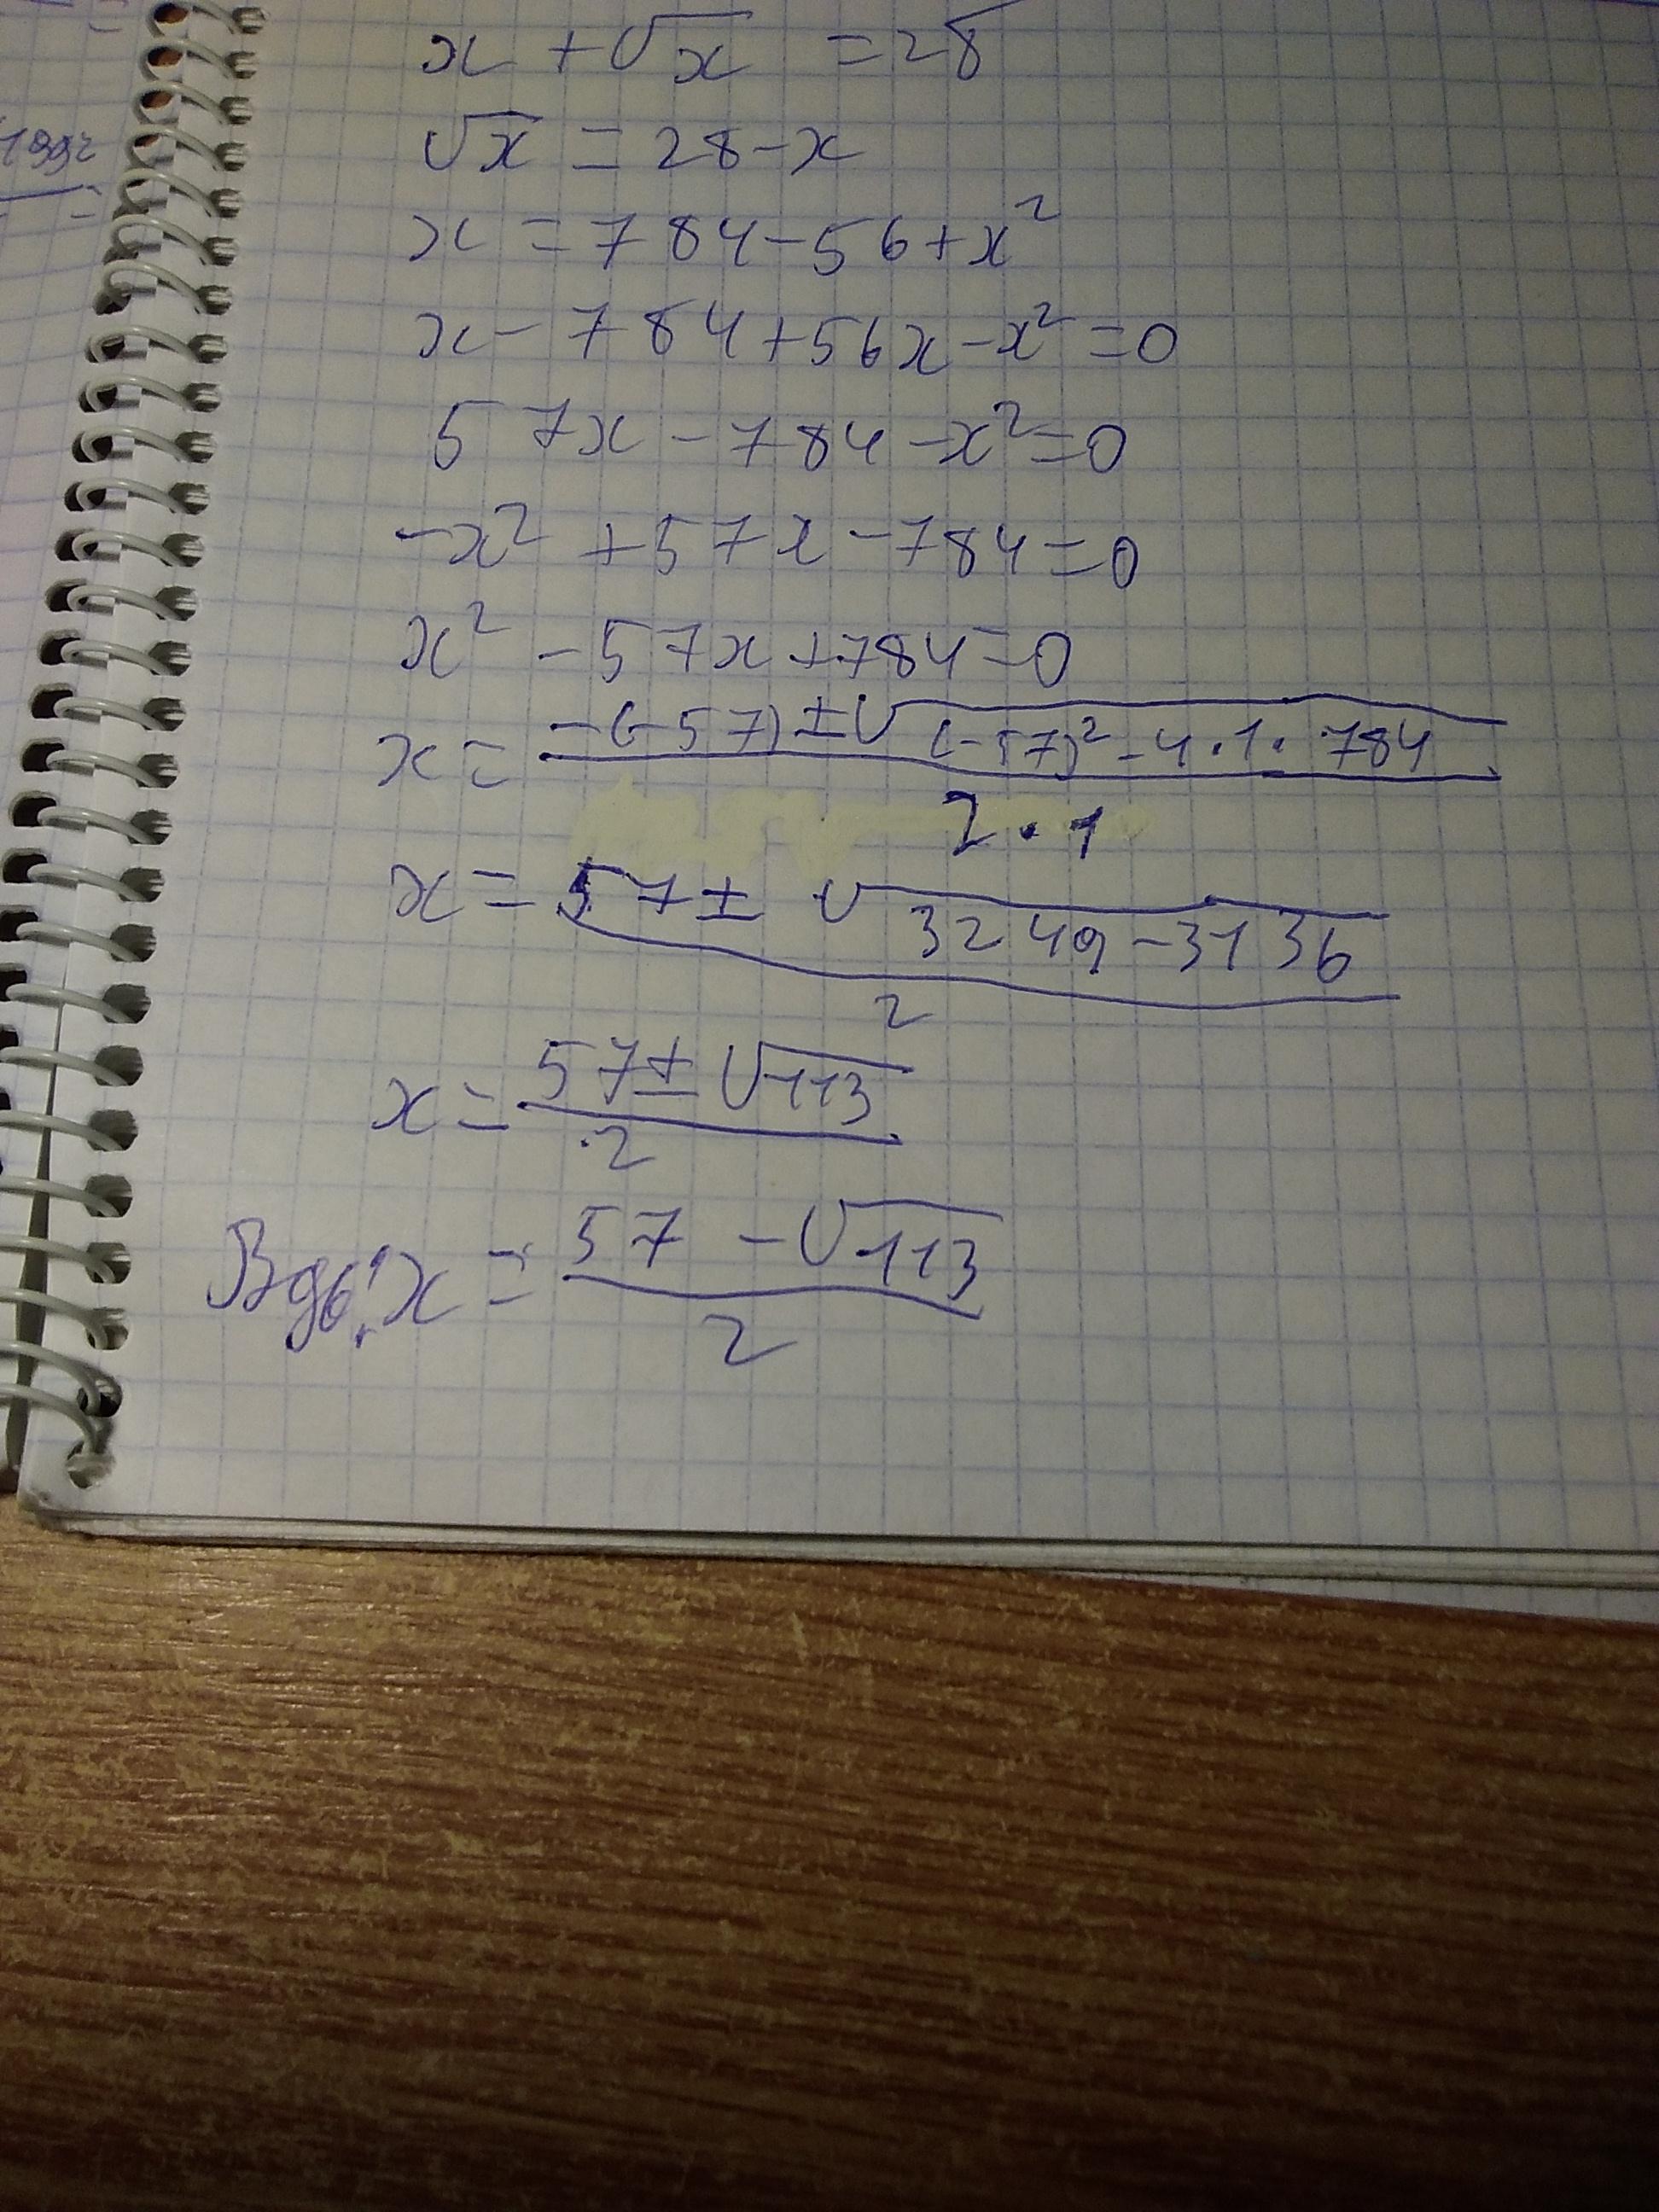 x + √x = 28
√x = 28 - x
1992
x = 784 - 56 + x²
x - 784 + 56x - x² = 0
57x - 784 - x² = 0
-x² + 57x - 784 = 0
x² - 57x + 784 = 0
x = (-(-57) ± √((-57)² - 4·1·784)) / (2·1)
x = (57 ± √(3249 - 3136)) / 2
x = (57 ± √113) / 2
Вдб: x = (57 - √113) / 2